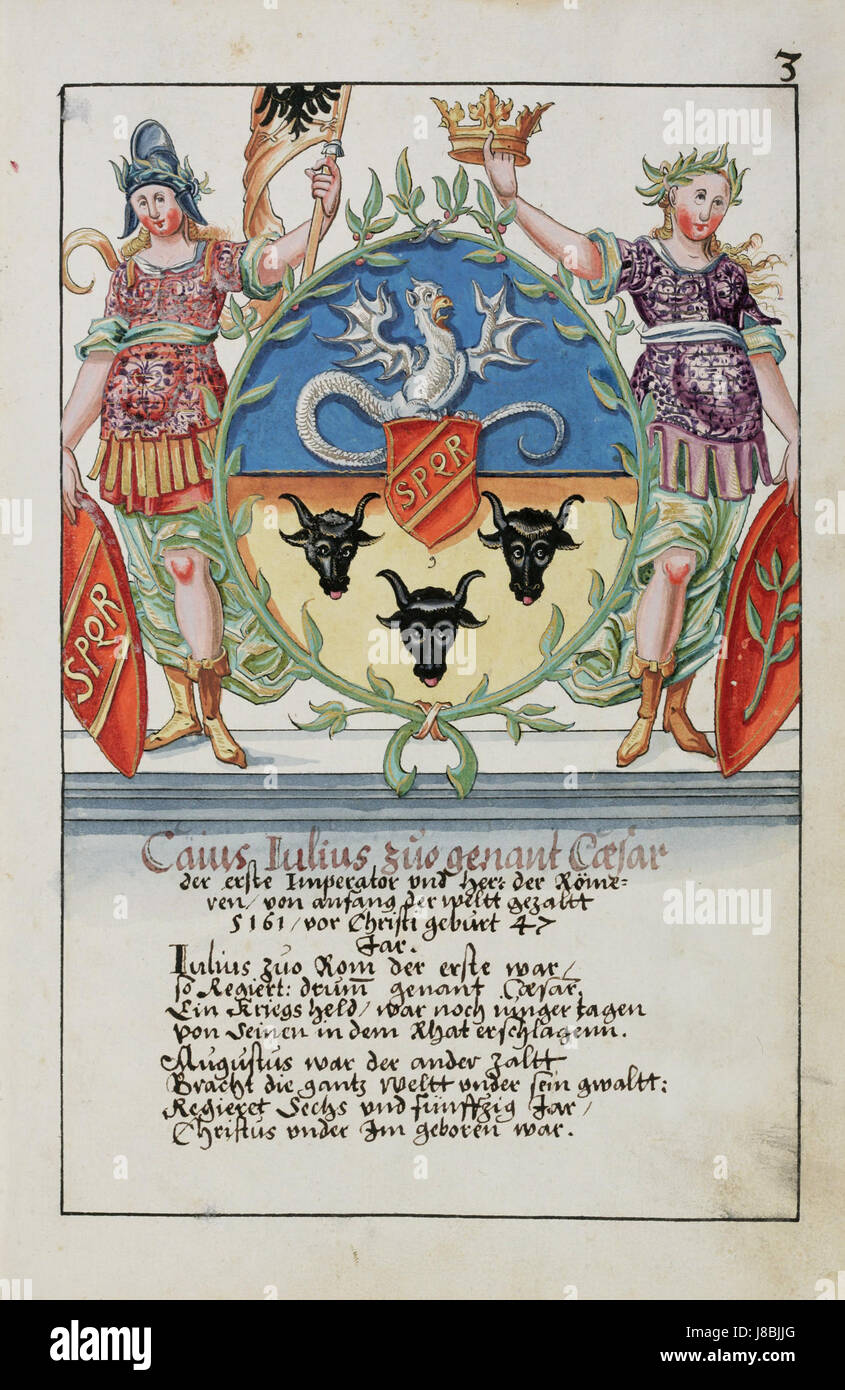 3
SPQR
SPQR
Caius Iulius zuo genant Cæsar
der erste Imperator vnd Her: der Röme=
ren / von anfang der weltt gezaltt
5161 / vor Christi geburt 47
Iar.
Iulius zuo Rom der erste war /
so Regiert: drum̄ genant Cæsar,
Ein Kriegs held / war noch iinger tagen
von Seinen in dem Rhat erschlagenn.
Augustus war der ander zaltt
Bracht die gantz weltt vnder sein gwaltt:
Regieret Sechs vnd fünffzig Iar /
Christus vnder Im geboren war.
a alamy stock photo
a
alamy
Image ID: J8BJJG
www.alamy.com